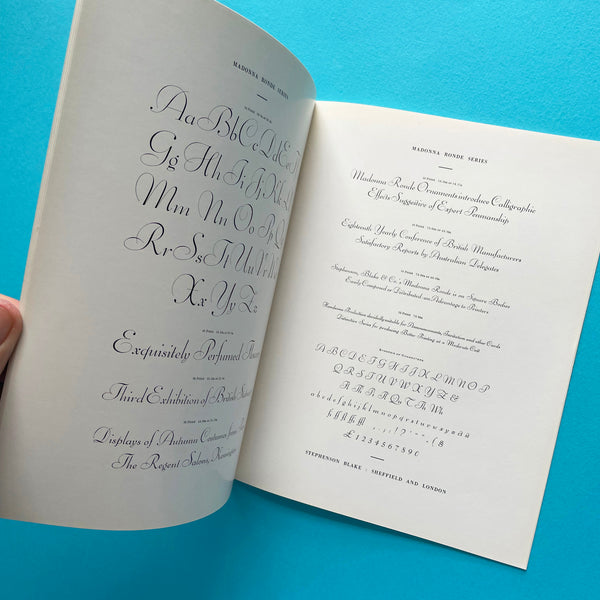 MADONNA RONDE SERIES
Aa Bb Cc Dd Ee
Gg Hh Ii Jj Kk
Mm Nn Oo Pp
Rr Ss Tt Uu Vv
Xx Yy Zz
Exquisitely Perfumed
Third Exhibition of British
Displays of Autumn Costumes from
The Regent Salons, Kensington
MADONNA RONDE SERIES
Madonna Ronde Ornaments introduce Calligraphic
Effects Suggestive of Expert Penmanship
Eighteenth Yearly Conference of British Manufacturers
Satisfactory Reports by Australian Delegates
Stephenson, Blake & Co.'s Madonna Ronde is on Square Bodies
Easily Composed or Distributed, an Advantage to Printers
Handsome Production decidedly suitable for Announcements, Invitation and other Cards
Distinctive Series for producing Better Printing at a Moderate Cost
A B C D E F G H I J K L M N O P
Q R S T U V W X Y Z &
a b c d e f g h i j k l m n o p q r s t u v w x y z
£ 1 2 3 4 5 6 7 8 9 0
STEPHENSON BLAKE · SHEFFIELD AND LONDON